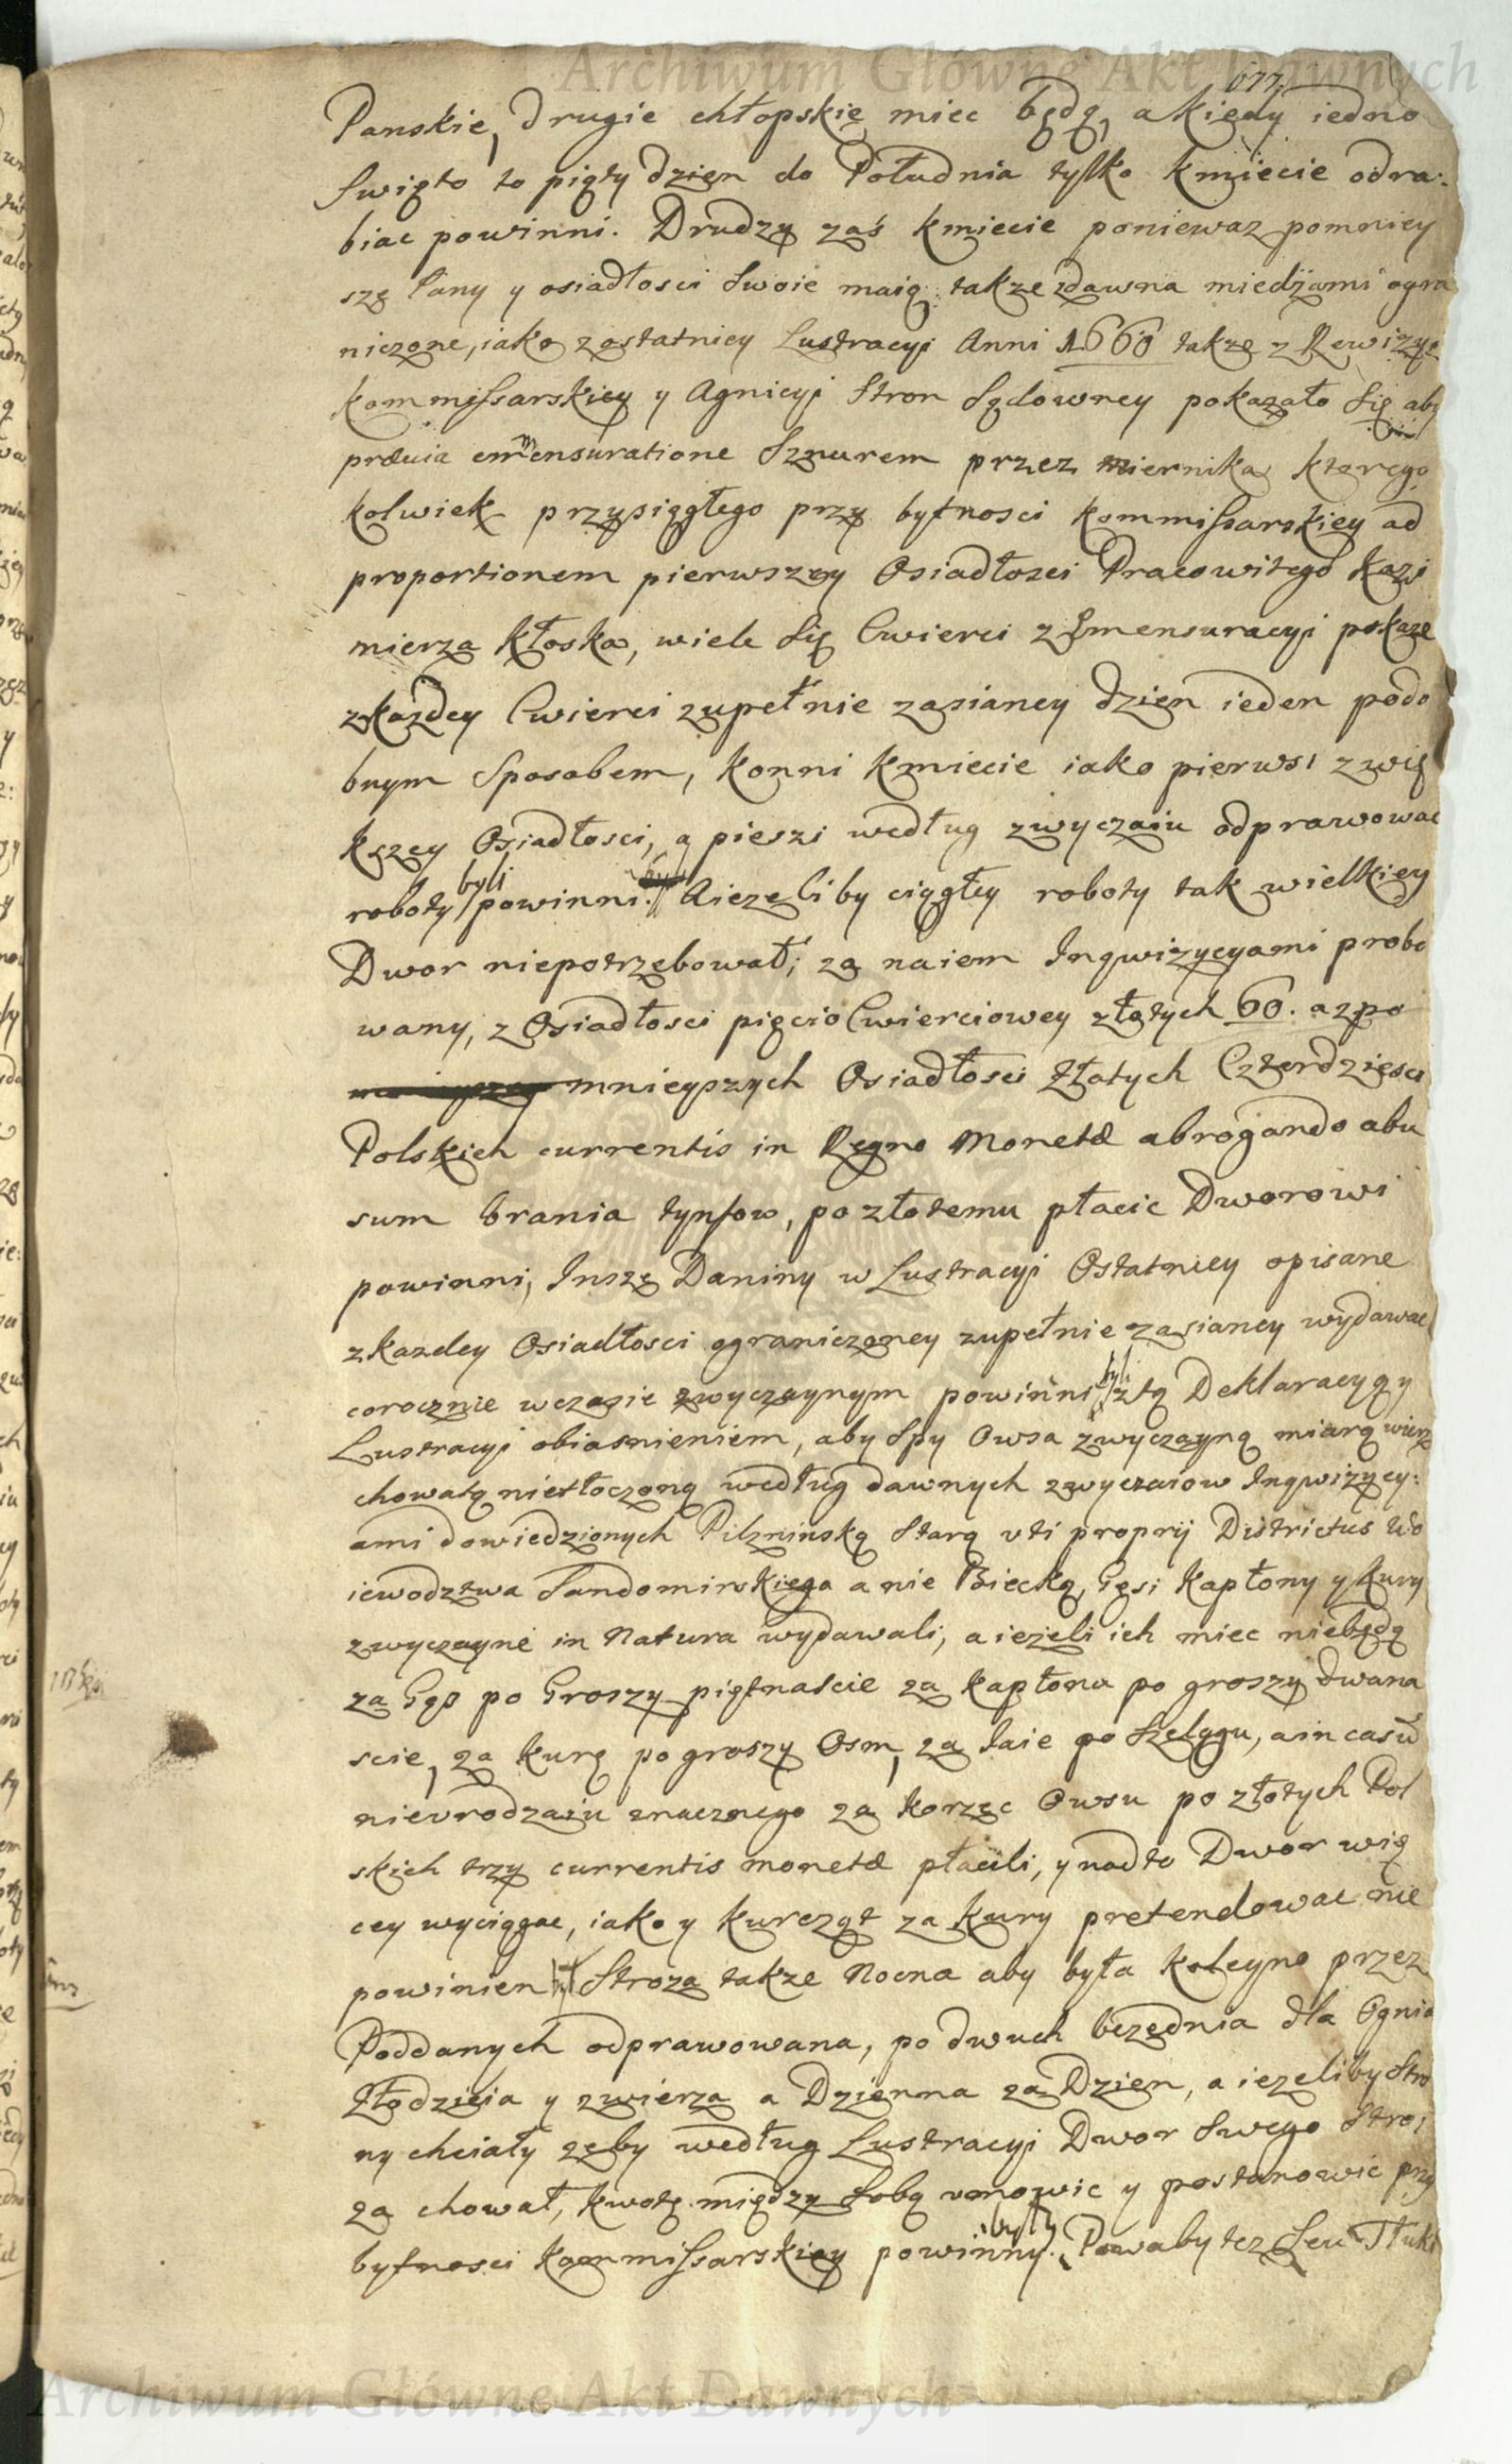 Archiwum Główne Akt Dawnych
677.
Panskie, drugie chłopskię miec będą, a kiedy iedno
Swięto to piąty dzien do Południa tylko kmiecie odra:
biac powinni. Drudzy zaś kmiecie poniewaz pomniey
szę łany y osiadłosci swoie maią takze zdawna miedzami ogra
niczone, iako z ostatniey Lustracyi Anni 1660 takze z Rewizyi
kommissarskiey y Agnicyi Stron Sądowney pokazało się aby
prævia emmensuratione Sznurem przez miernika ktorego
kolwiek przysięgłego przy bytnosci kommissarskiey ad
proportionem pierwszey Osiadłosci Pracowitego Kazi
mierza Kłoska, wiele się Cwierci z Emensuracyi pokaze
z kazdey Cwierci zupełnie zasianey dzien ieden podo
bnym Sposobem, konni kmiecie iako pierwsi z wię
kszey Osiadłosci, a pieszi według zwyczaiu odprawowac
roboty byli powinni. A iezeliby ciągłey roboty tak wielkiey
Dwor niepotrzebował; za naiem Inqwizycyami probo
wany, z Osiadłosci pięcio Cwierciowey złotych 60. a z po
mnieyszych Osiadłosci Złotych Czterdziesci
Polskich currentis in Regno Monetæ abrogando abu
sum brania tynfow, po złotemu płacic Dworowi
powinni, Insze Daniny w Lustracyi Ostatniey opisane
z kazdey Osiadłosci ograniczoney zupełnie zasianey wydawac
corocznie w czasie zwyczaynym powinni byli z tą Deklaracyą y
Lustracyi obiasnieniem, aby Spy Owsa zwyczayną miarą wierz
chowatą nietłoczoną według dawnych zwyczaiow Inqwizycy:
ami dowiedzionych Pilznińską Starą vti proprij Districtus Wo
iewodztwa Sandomirskiego a nie Biecką, Gęsi Kapłony y Kury
zwyczayne in Natura wydawali, a iezeli ich miec niebędą
za Gęs po Groszy piętnascie za kapłona po groszy dwana
scie, za kurę po groszy Osm, za Jaie po Szelągu, a in casu
nievrodzaiu znacznego za korzec Owsu po złotych Pol
skich trzy currentis monetæ płacili, y nadto Dwor wię
cey wyciągac, iako y kurcząt za kury pretendowac nie
powinien był Stroza takze Nocna aby była koleyno przez
Poddanych odprawowana, po dwuch bezednia dla Ognia
Złodzieia y zwierza a Dzienna za Dzien, a iezeliby Stro
ny chciały zeby według Lustracyi Dwor Swego Stro
za chował, kwotę między Sobą vmowic y postanowic przy
bytnosci kommissarskiey powinny były. Powaby tez Seu Tłuki
Archiwum Główne Akt Dawnych